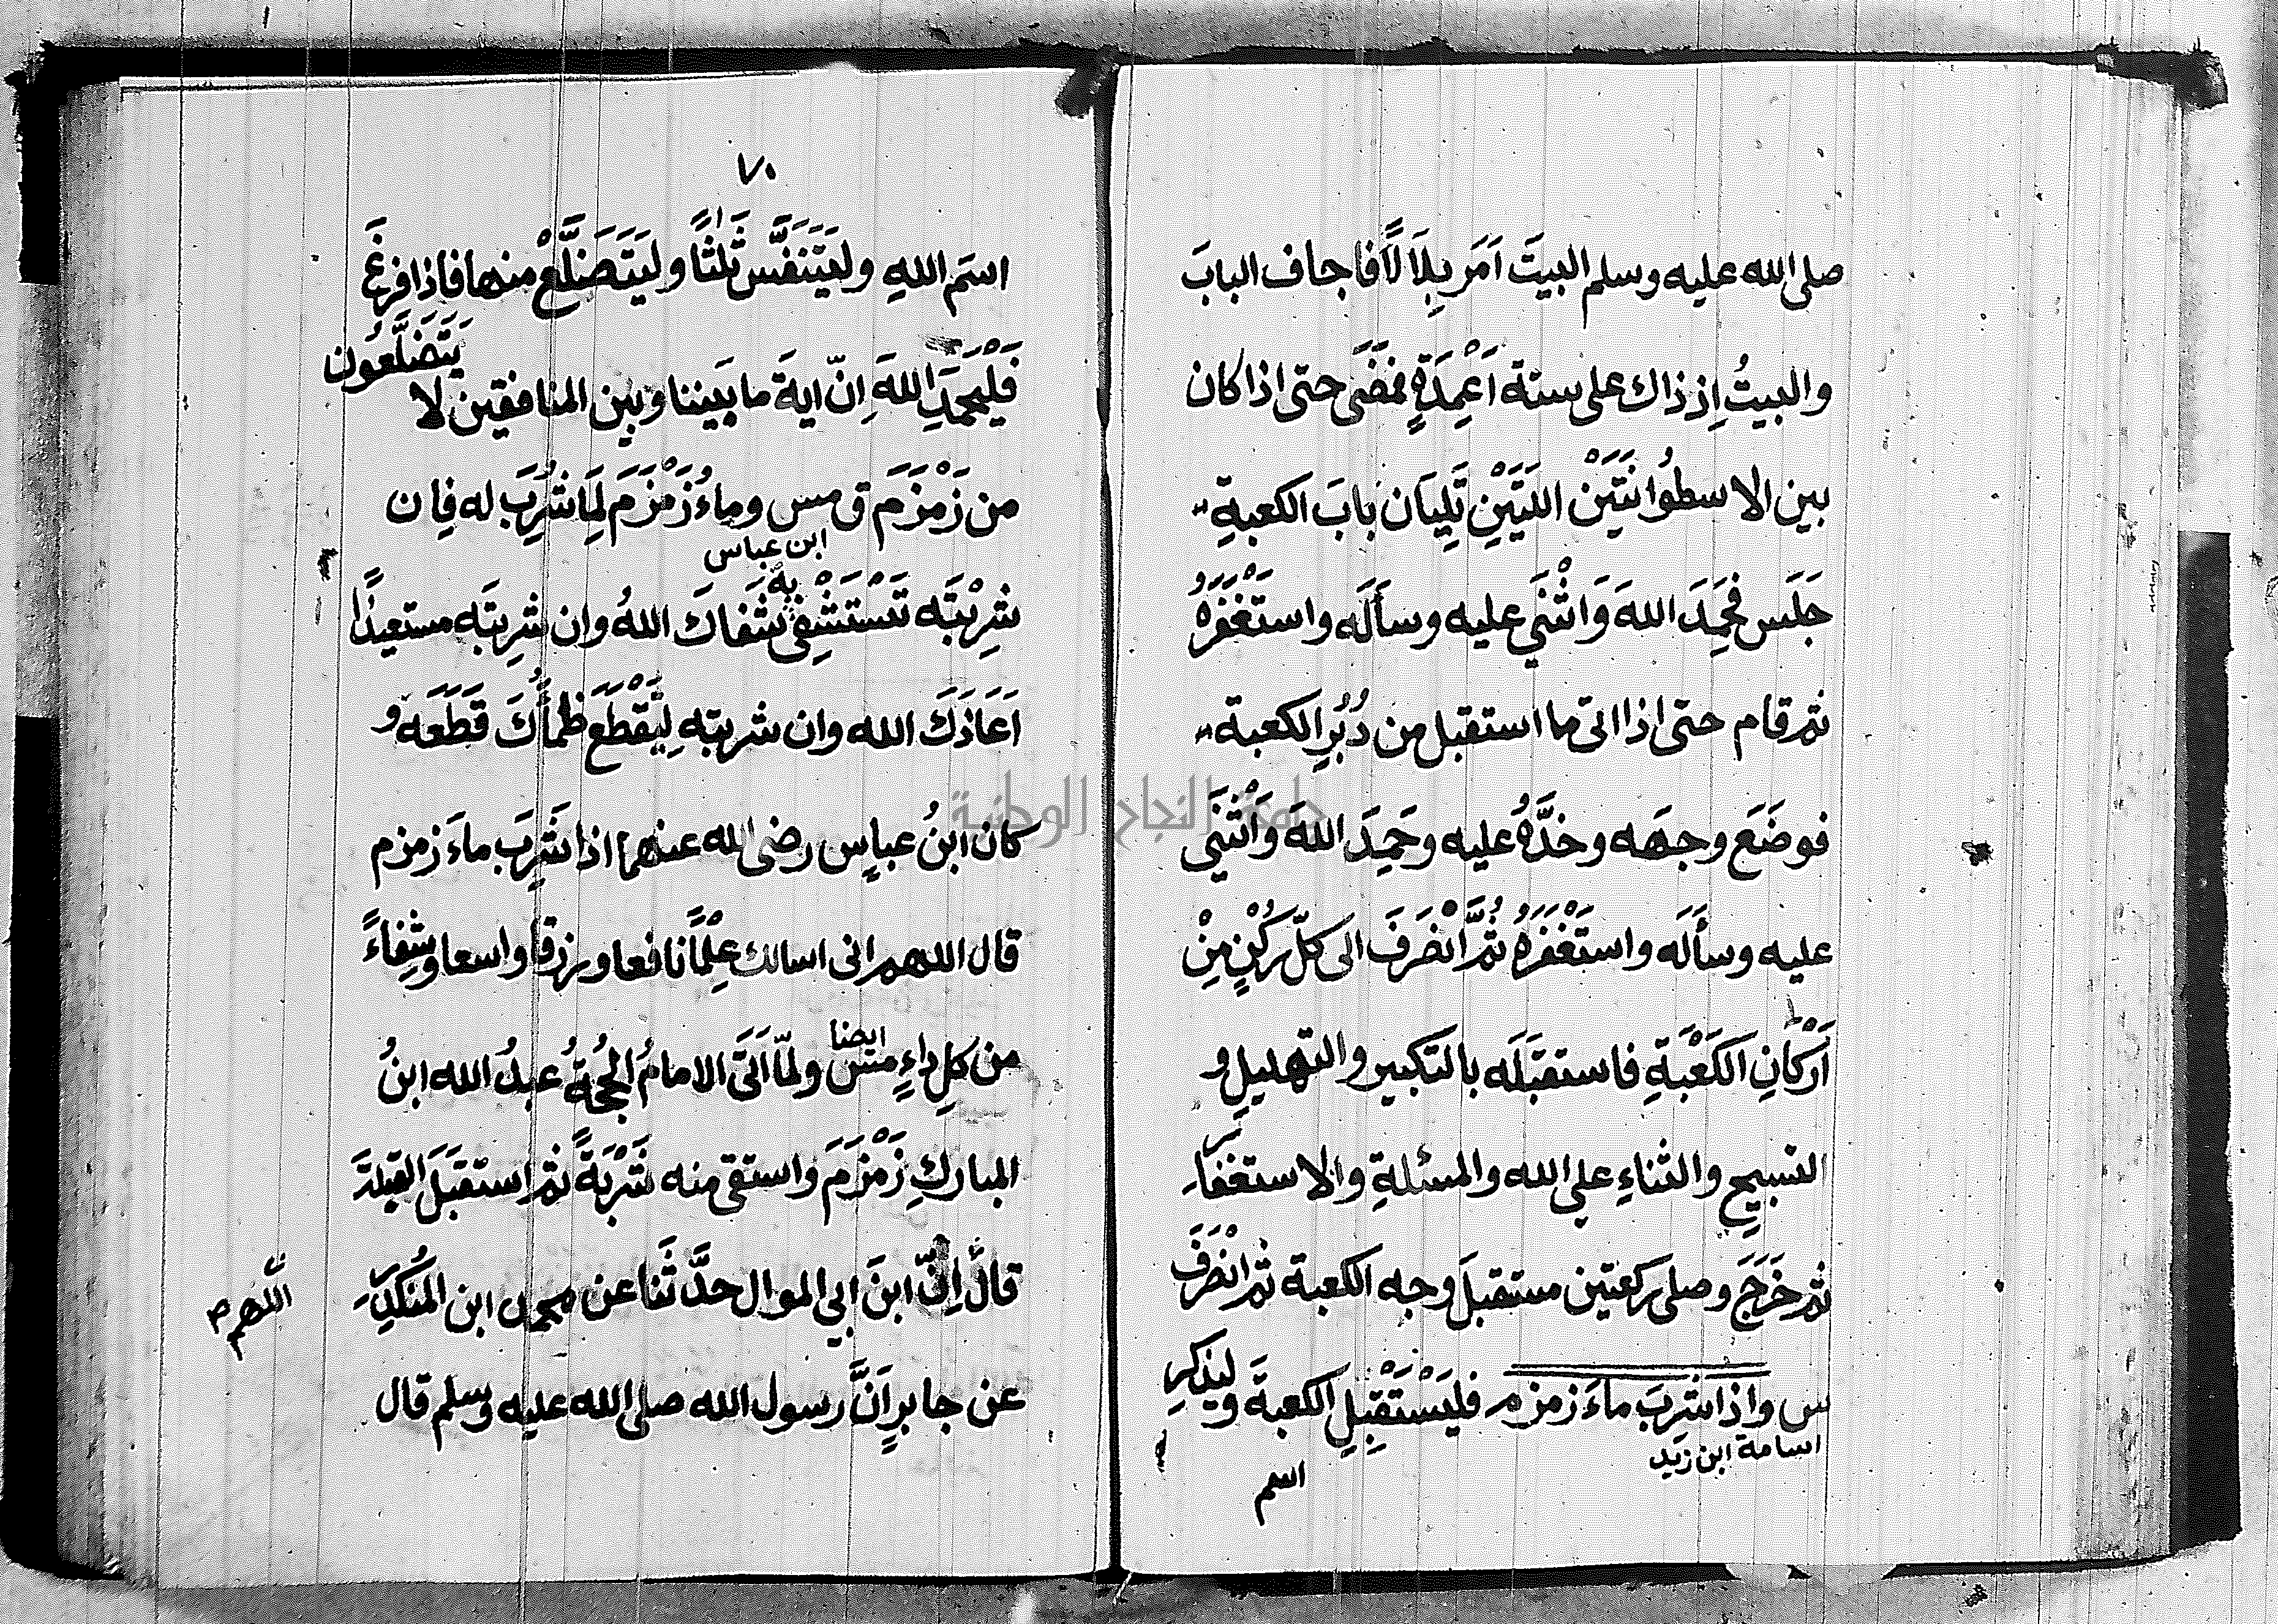 صلى الله عليه وسلم البيتَ اَمَر بِلَالًا فاجاف البابَ
والبيتُ اِذ ذاك على ستة اَعْمِدَةٍ فمَضَى حتى اذا كان
بين الاسطُوانَتَيْن اللتَيْنِ تَلِيَان بابَ الكعبةِ
جَلَس فحَمِدَ اللهَ وَاَثْنَى عليه وسأَلَه واستَغْفَرَهُ
ثم قام حتى اذا اتى ما استقبل من دُبُرِ الكعبة
فوضَعَ وجهَه وخدَّهُ عليه وحَمِدَ اللهَ وَاَثْنَى
عليه وسأَلَه واستَغْفَرَهُ ثُمَّ انْصَرَفَ الى كلّ رُكْنٍ مِنْ
اَرْكانِ الكَعْبَةِ فاستقبَلَه بالتكبير والتهليلِ و
التسبيحِ والثناءِ على الله والمسئلةِ والاستغفار
ثم خَرَجَ وصلى ركعتين مستقبلَ وجه الكعبة ثم انْصَرَفَ
س واذا شَرِبَ ماءَ زمزم فليَسْتَقْبِلِ الكعبةَ وليذكرِ
اسامة ابن زيد
اسم
٧٠
اسمَ اللهِ ولْيَتَنَفَّس ثَلٰثًا وليَتَضَلَّعْ منها فاذا فرغَ
فَلْيَحْمَدِ اللهَ اِنّ ايةَ ما بَيننا وبين المنافقين لا يَتَضَلَّعُون
من زَمْزَم ق مس وماءُ زَمْزَمَ لِمَا شُرِبَ له فاِن
ابن عباس
شَرِبْتَه تَسْتَشْفِى به شَفاكَ اللهُ وان شرِبتَه مستعيذًا
اَعَاذَكَ الله وان شربته لِيَقْطَعَ ظمأَكَ قَطَعَه و
كان ابنُ عباسٍ رضى الله عنهما اذا شَرِبَ ماءَ زمزم
قال اللهم انى اسالك عِلْمًا نافعا ورزقا واسعا وشِفاءً
من كلِ داءٍ مس ايضا ولمّا اَتَى الامامُ الحُجةُ عبدُ الله ابنُ
المباركِ زَمْزَمَ واستقى منه شَرْبَةً ثم استقبَلَ القبلةَ
قال اللّٰهم اِنّ ابنَ ابى الموال حدَّثَنا عن محمد ابن المُنْكَدِر
عن جابرٍ اَنَّ رسول الله صلى الله عليه وسلم قال
جامعة النجاح الوطنية